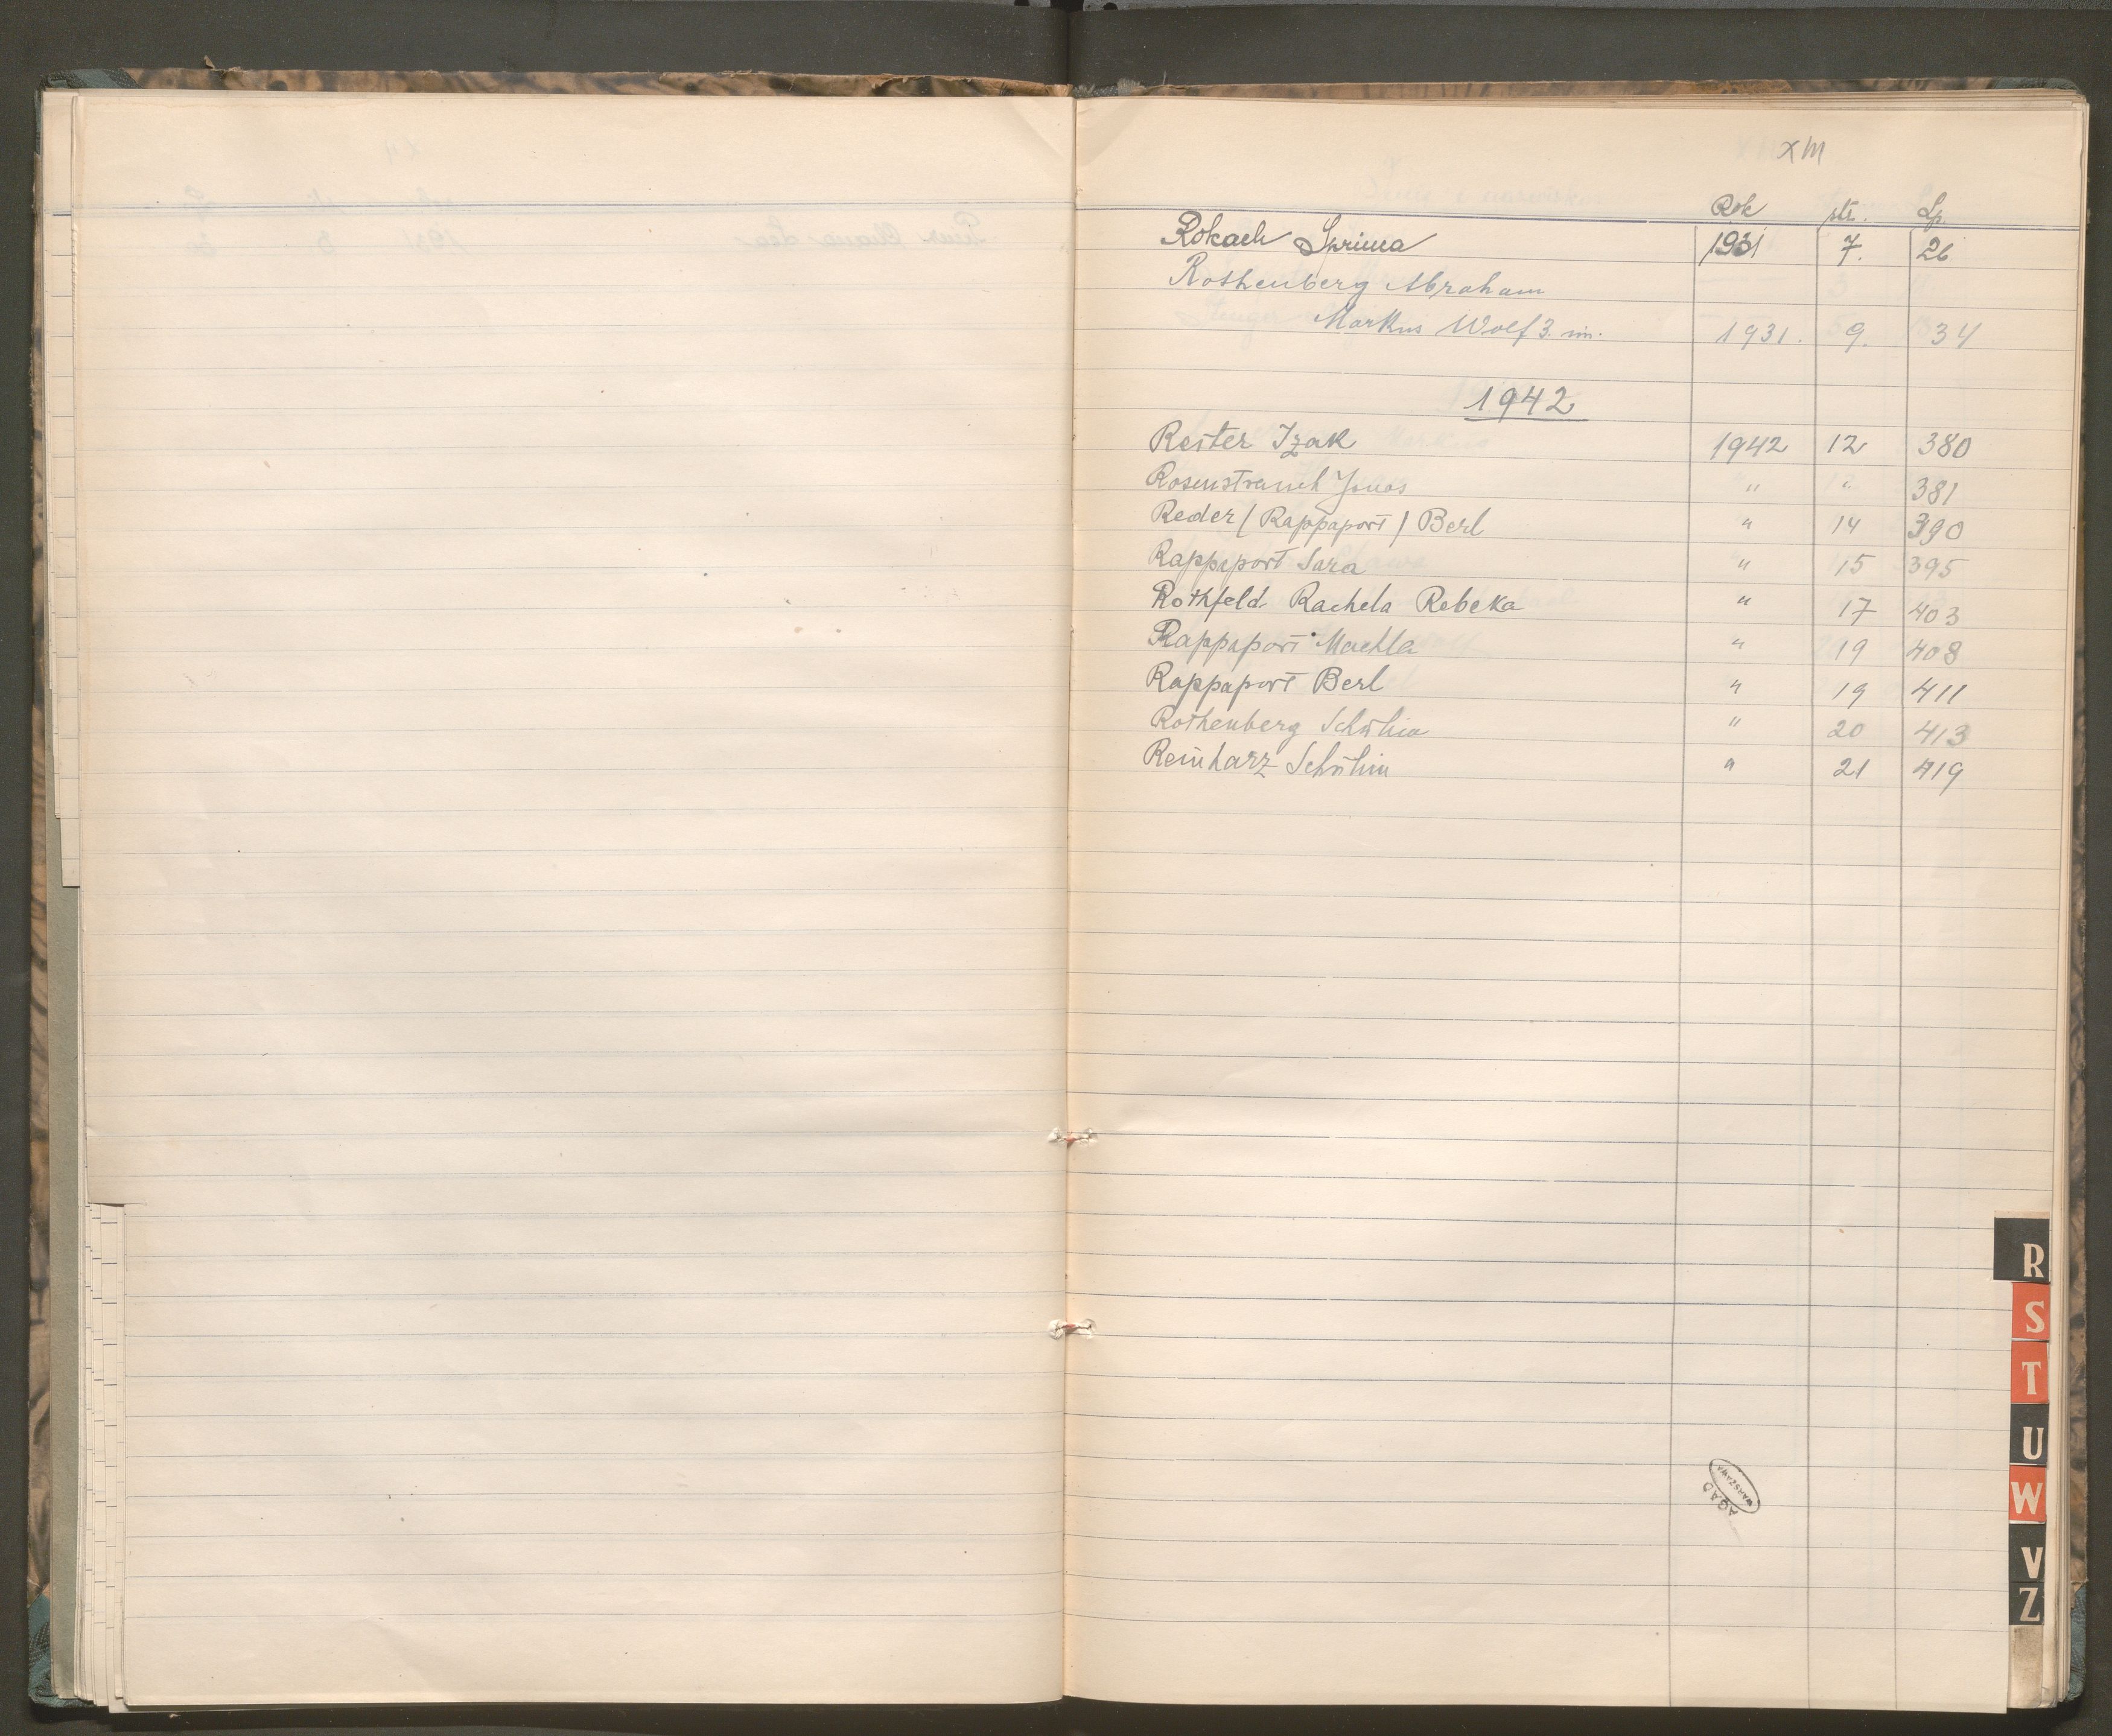 XIII
Rok str. Lp.
Rokach Sprinca 1931 7. 26
Rothenberg Abraham
Markus Wolf 3. im. 1931. 9. 34
1942
Reiter Izak 1942 12 380
Rosenstrauch Jonas " " 381
Reder / Rappaport / Berl " 14 390
Rappaport Sara " 15 395
Rothfeld Rachela Rebeka " 17 403
Rappaport Machla " 19 408
Rappaport Berl " 19 411
Rothenberg " 20 413
Reinharz " 21 419
R
S
T
U
W
V
Z
AGAD
WARSZAWA